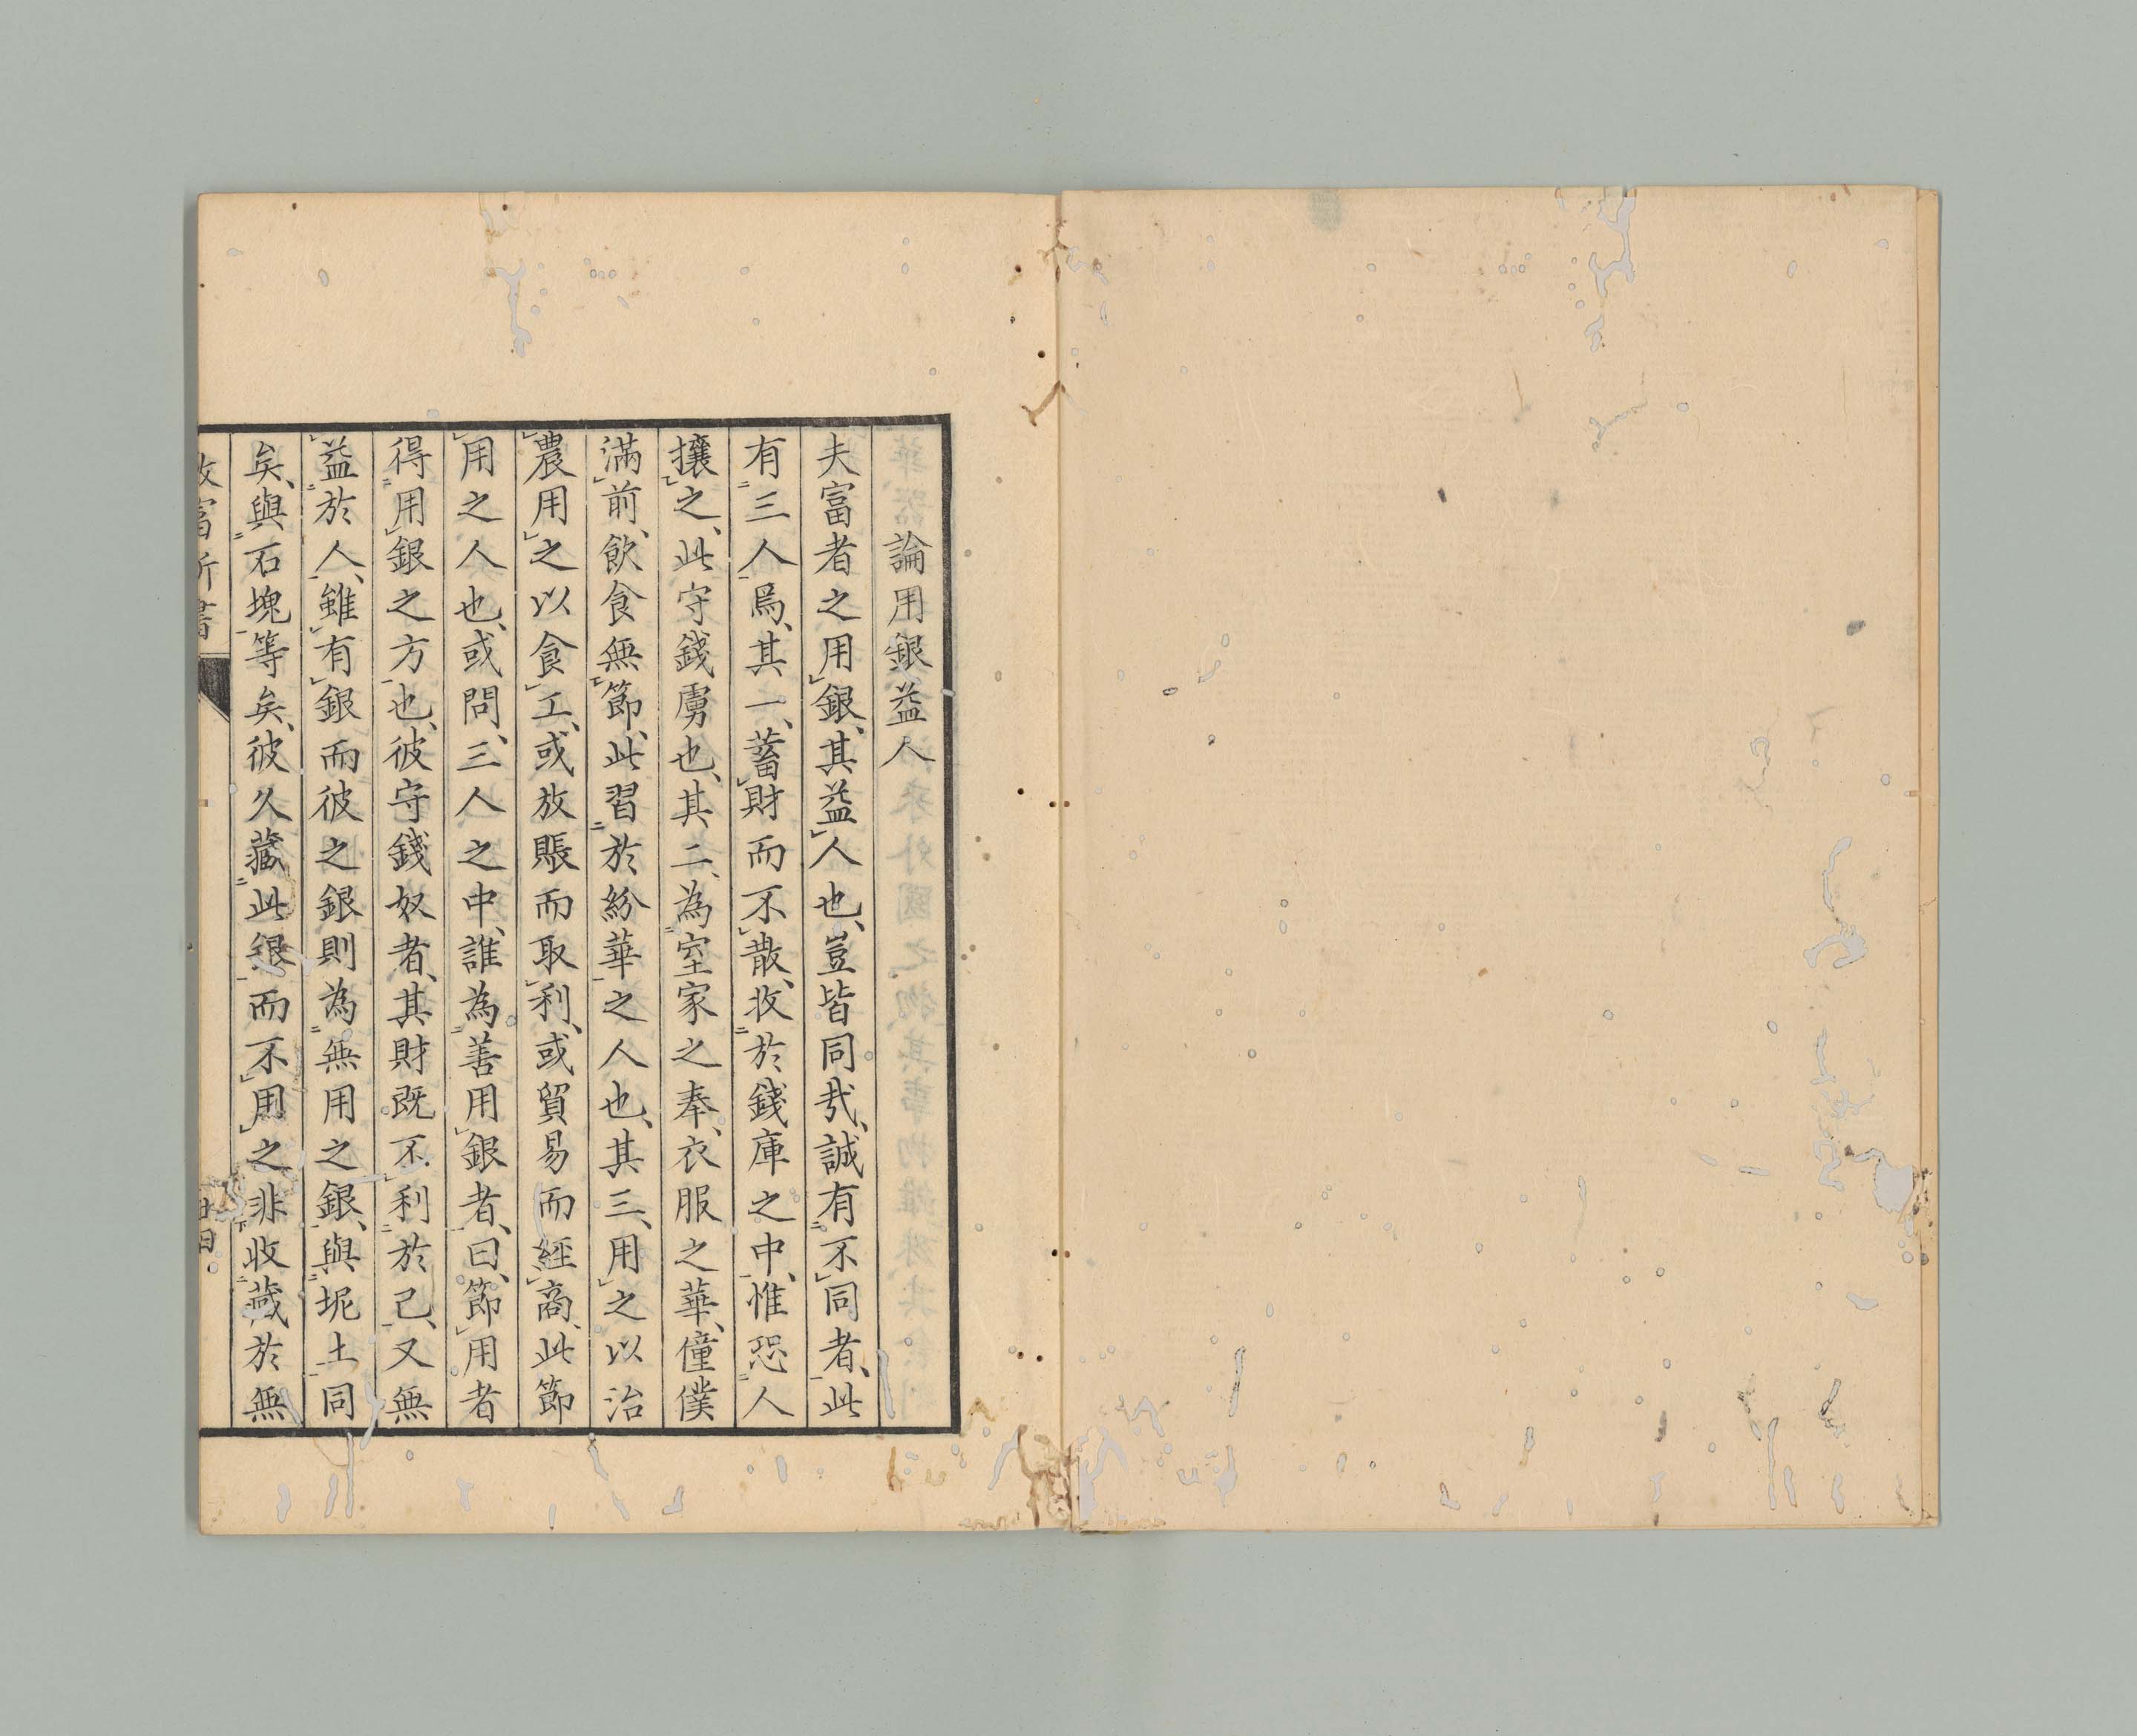 論用銀益人
夫富者之用銀、其益人也、豈皆同哉、誠有不同者、此
有三人焉、其一、蓄財而不散、收於錢庫之中、惟恐人
攘之、此守錢虜也、其二、為室家之奉、衣服之華、僮僕
滿前、飲食無節、此習於紛華之人也、其三、用之以治
農用之以食工、或放賬而取利、或貿易而經商、此節
用之人也、或問、三人之中、誰為善用銀者、曰、節用者
得用銀之方也、彼守錢奴者、其財既不利於己、又無
益於人、雖有銀而彼之銀則為無用之銀、與坭土同
矣、與石塊等矣、彼久藏此銀而不用之非收藏於無
致富新書